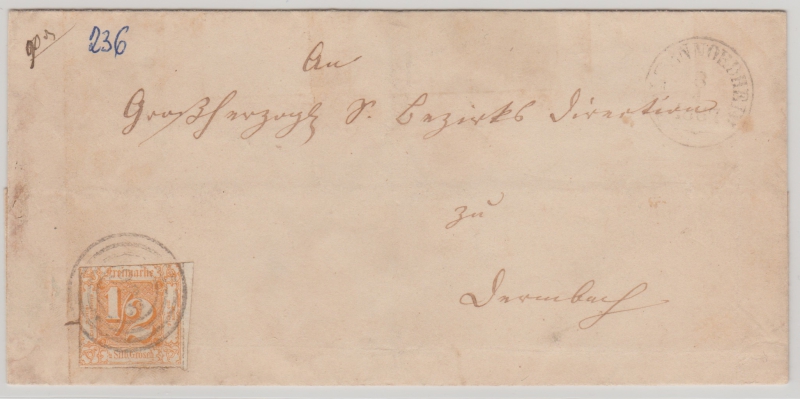 236
An
Großherzogl S. Bezirks Direction
zu
Dermbach
Freimarke
1/2
Silb. Grosch.